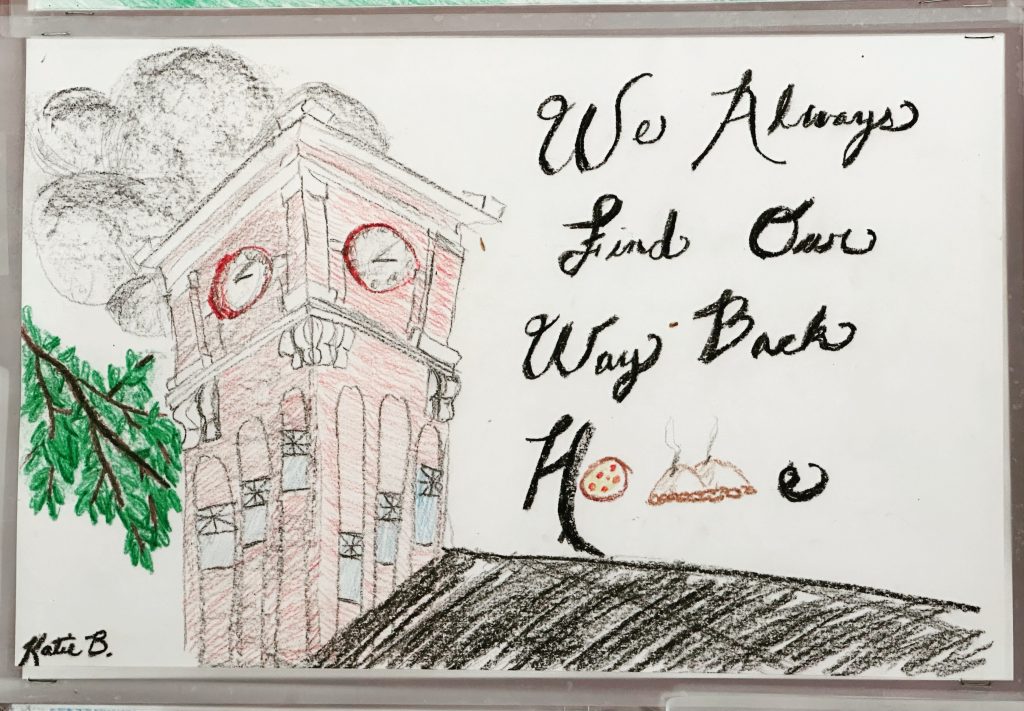 We Always
Find Our
Way Back
Home
Katie B.